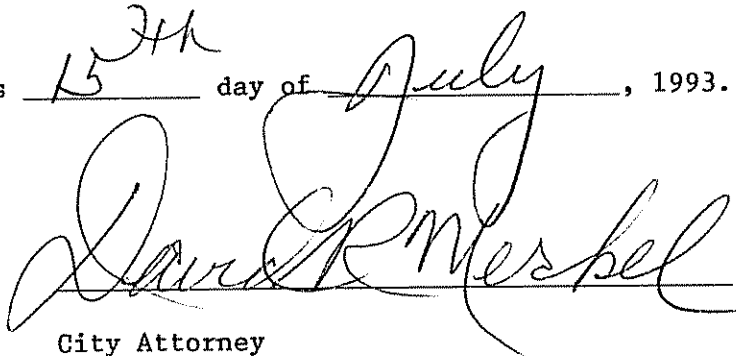 s 15th day of July, 1993.
David R Merkel
City Attorney